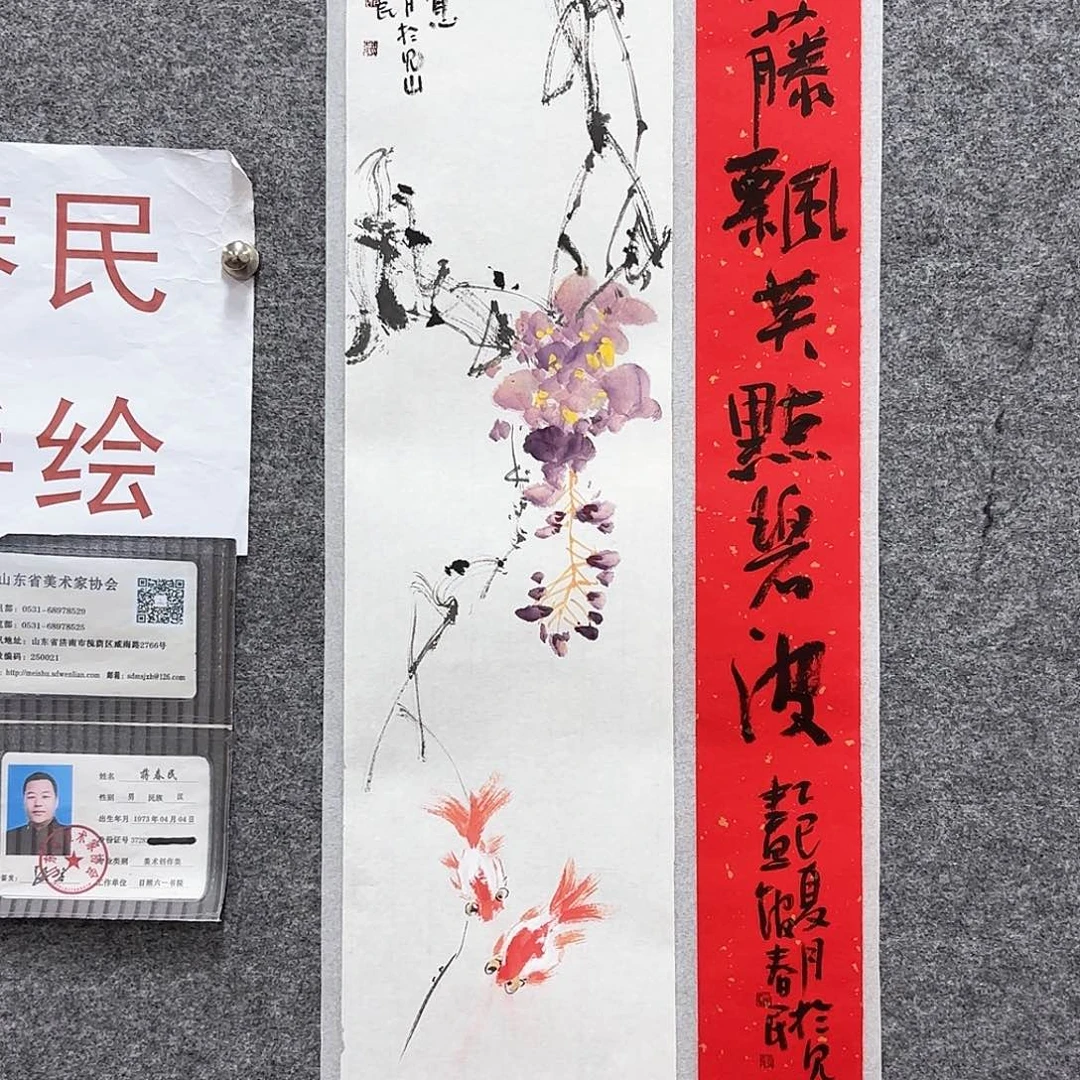 春民
绘
山东省美术家协会
0531-68978529
0531-68978525
地址：山东省济南市槐荫区威海路2766号
编码：250021
http://meishu.sdwenlian.com 邮箱：sdmsjxh@126.com
姓名 蒋春民
性别 男 民族 汉
出生年月 1973年04月04日
身份证号 3728
业类别 美术创作类
工作单位 日照六一书院
月於见山
民
藤飘英點碧波
夏月於见
春民